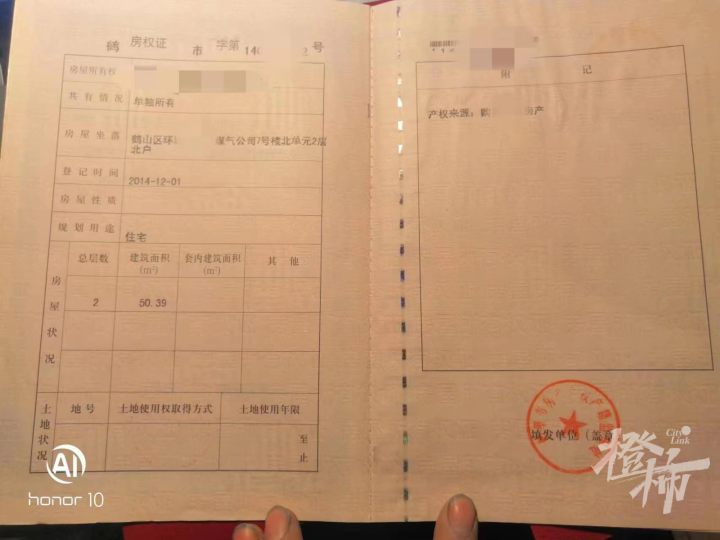 鹤 房权证 市 字第 14 2 号
房屋所有权
共有情况 单独所有
房屋坐落 鹤山区环 煤气公司7号楼北单元2层
北户
登记时间 2014-12-01
房屋性质
规划用途 住宅
房屋状况
总层数 建筑面积 套内建筑面积 其 他
(m²) (m²)
2 50.39
土地状况
地号 土地使用权取得方式 土地使用年限
至
止
附 记
产权来源：购 房产
填发单位（盖章）
AI
honor 10
橙柿
City Link